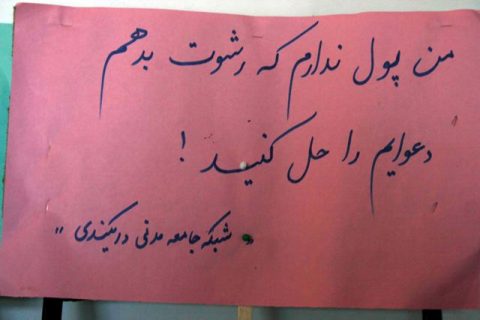 من پول ندارم که رشوت بدهم
دعوایم را حل کنید !
" شبکه جامعه مدنی دایکندی "